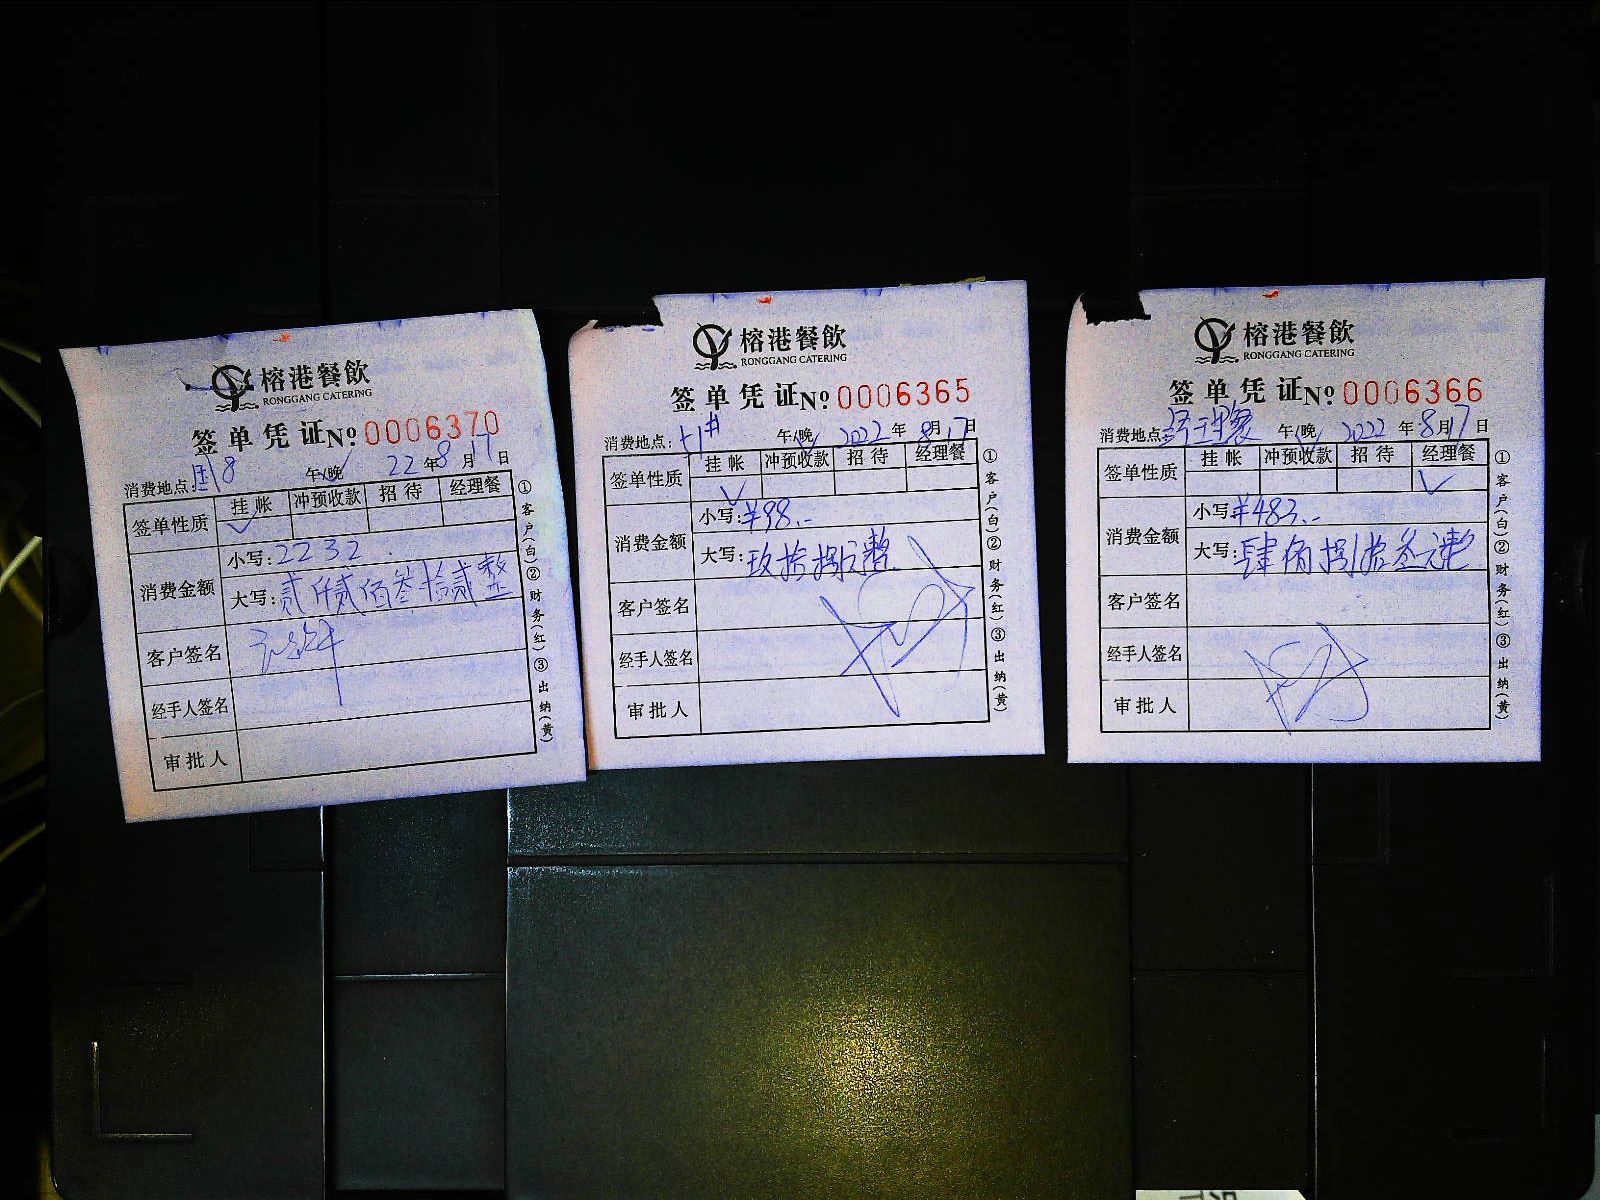 榕港餐飲
RONGGANG CATERING
签单凭证 № 0006370
消费地点: 国8 午/晚 22年8月17日
签单性质 挂帐 冲预收款 招待 经理餐
✓
消费金额 小写: 2232.
大写: 贰仟贰佰叁拾贰整
客户签名
经手人签名
审批人
①客户(白)②财务(红)③出纳(黄)
榕港餐飲
RONGGANG CATERING
签单凭证 № 0006365
消费地点: 午/晚 2022年8月17日
签单性质 挂帐 冲预收款 招待 经理餐
✓
消费金额 小写: ¥98.-
大写: 玖拾捌元整
客户签名
经手人签名
审批人
①客户(白)②财务(红)③出纳(黄)
榕港餐飲
RONGGANG CATERING
签单凭证 № 0006366
消费地点: 经理餐 午/晚 2022年8月17日
签单性质 挂帐 冲预收款 招待 经理餐
✓
消费金额 小写: ¥483.-
大写: 肆佰捌拾叁元整
客户签名
经手人签名
审批人
①客户(白)②财务(红)③出纳(黄)